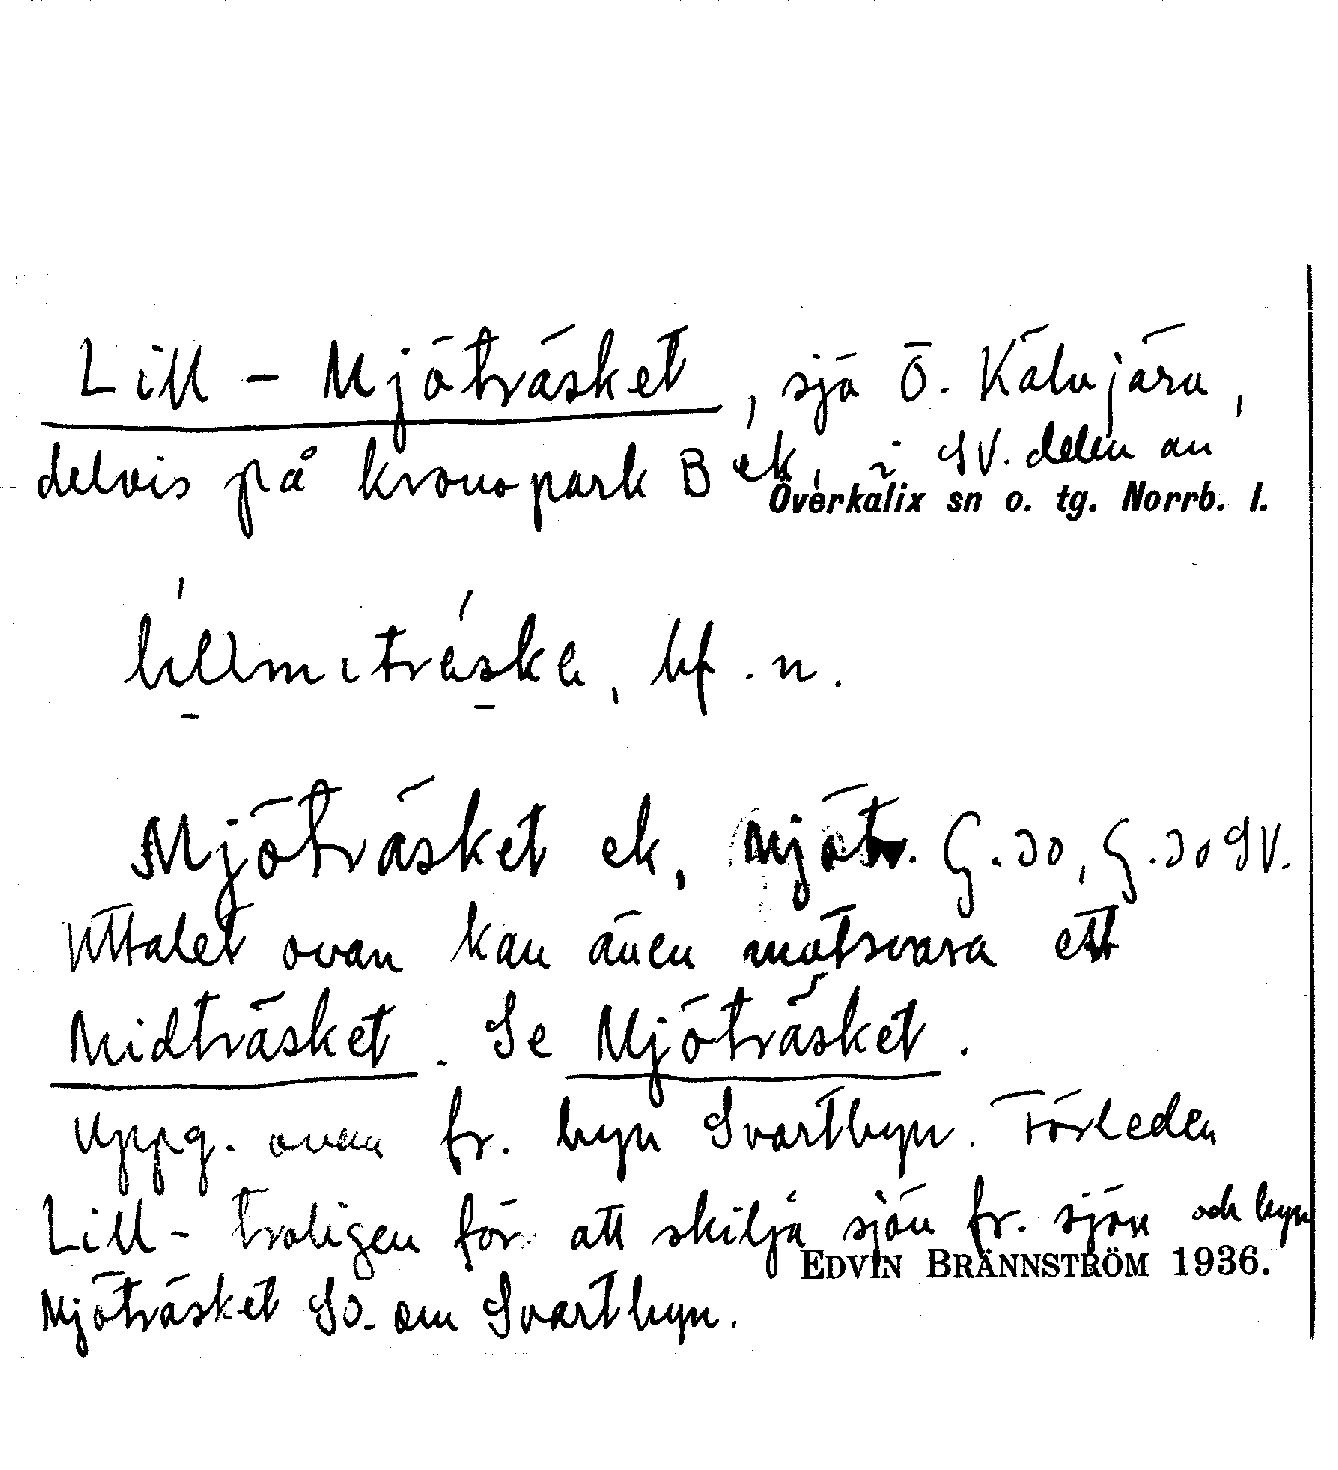 Lill-Mjöträsket, sjö Ö. Kälvjärv,
delvis på kronopark B ek, i SV. delen av
Överkalix sn o. tg. Norrb. l.
bf. n.
Mjöträsket ek, Mjötr. G. 30, G. 30 SV.
Uttalet ovan kan även motsvara ett
Midträsket. Se Mjöträsket.
Uppg. ovan fr. byn Svartbyn. Förleden
Lill- troligen för att skilja sjön fr. sjön och byn
EDVIN BRÄNNSTRÖM 1936.
Mjöträsket SO. om Svartbyn.